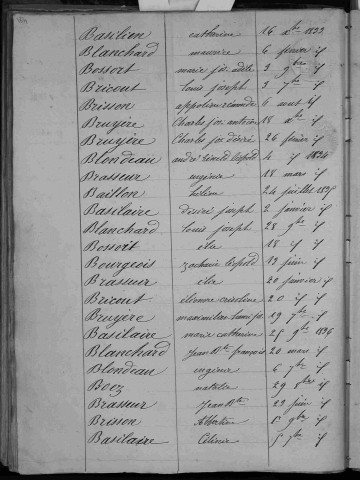 Basilien catherine 16 Xbre 1833
Blanchard maurice 6 fevrier if
Bossort marie jos. adèle 3 9bre if
Bricout Louis joseph 3 7bre if
Brisson appoline 6 aout if
Bruyère Charles jos. antoine 18 Xbre if
Bruyère Charles jos. désiré 26 fevrier if
Blondeau andré Léopold 4 if 1834
Brasseur eugénie 18 mars if
Baillon hélène 24 juillet 1835
Basilaire Désiré joseph 2 janvier if
Blanchard Louis joseph 28 9bre if
Bossort 18 if if
Bourgeois Zacharie Léopold 13 juin if
Brasseur 20 janvier if
Bricout éléonore 20 if if
Bruyère maximilien 19 7bre if
Basilaire marie catherine 25 9bre 1836
Blanchard Jean Bte françois 20 mars if
Blondeau eugénie 6 7bre if
Boez natalie 29 if
Brasseur Jean Bte 23 juin if
Brisson Albertine 5 9bre if
Basilaire Célinie 5 7bre if